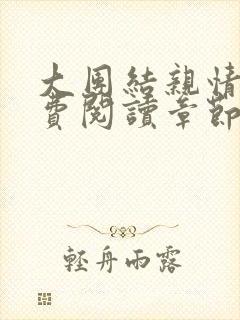 大圆结親情
費閱讀章節
輕舟雨露